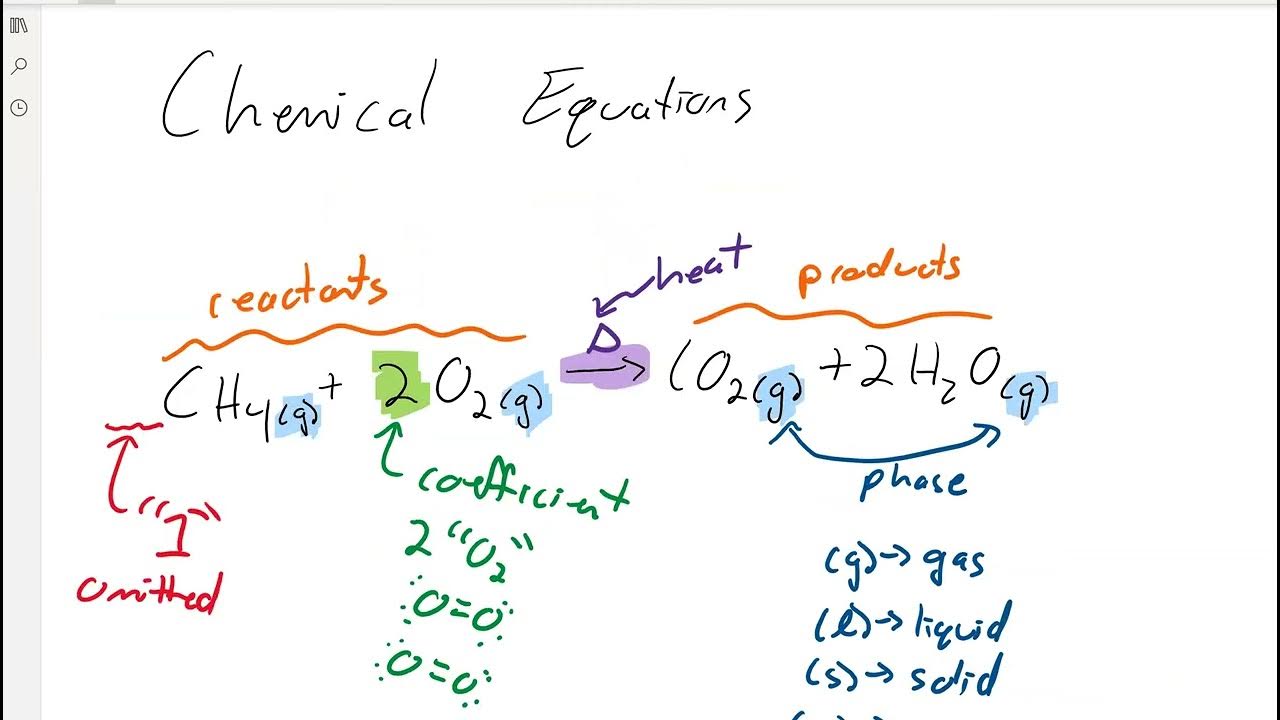 Chemical Equations
reactants
heat
products
Δ
CH₄(g) + 2 O₂(g) → CO₂(g) + 2 H₂O(g)
"1"
omitted
coefficient
2 "O₂"
O=O
O=O
phase
(g) → gas
(l) → liquid
(s) → solid